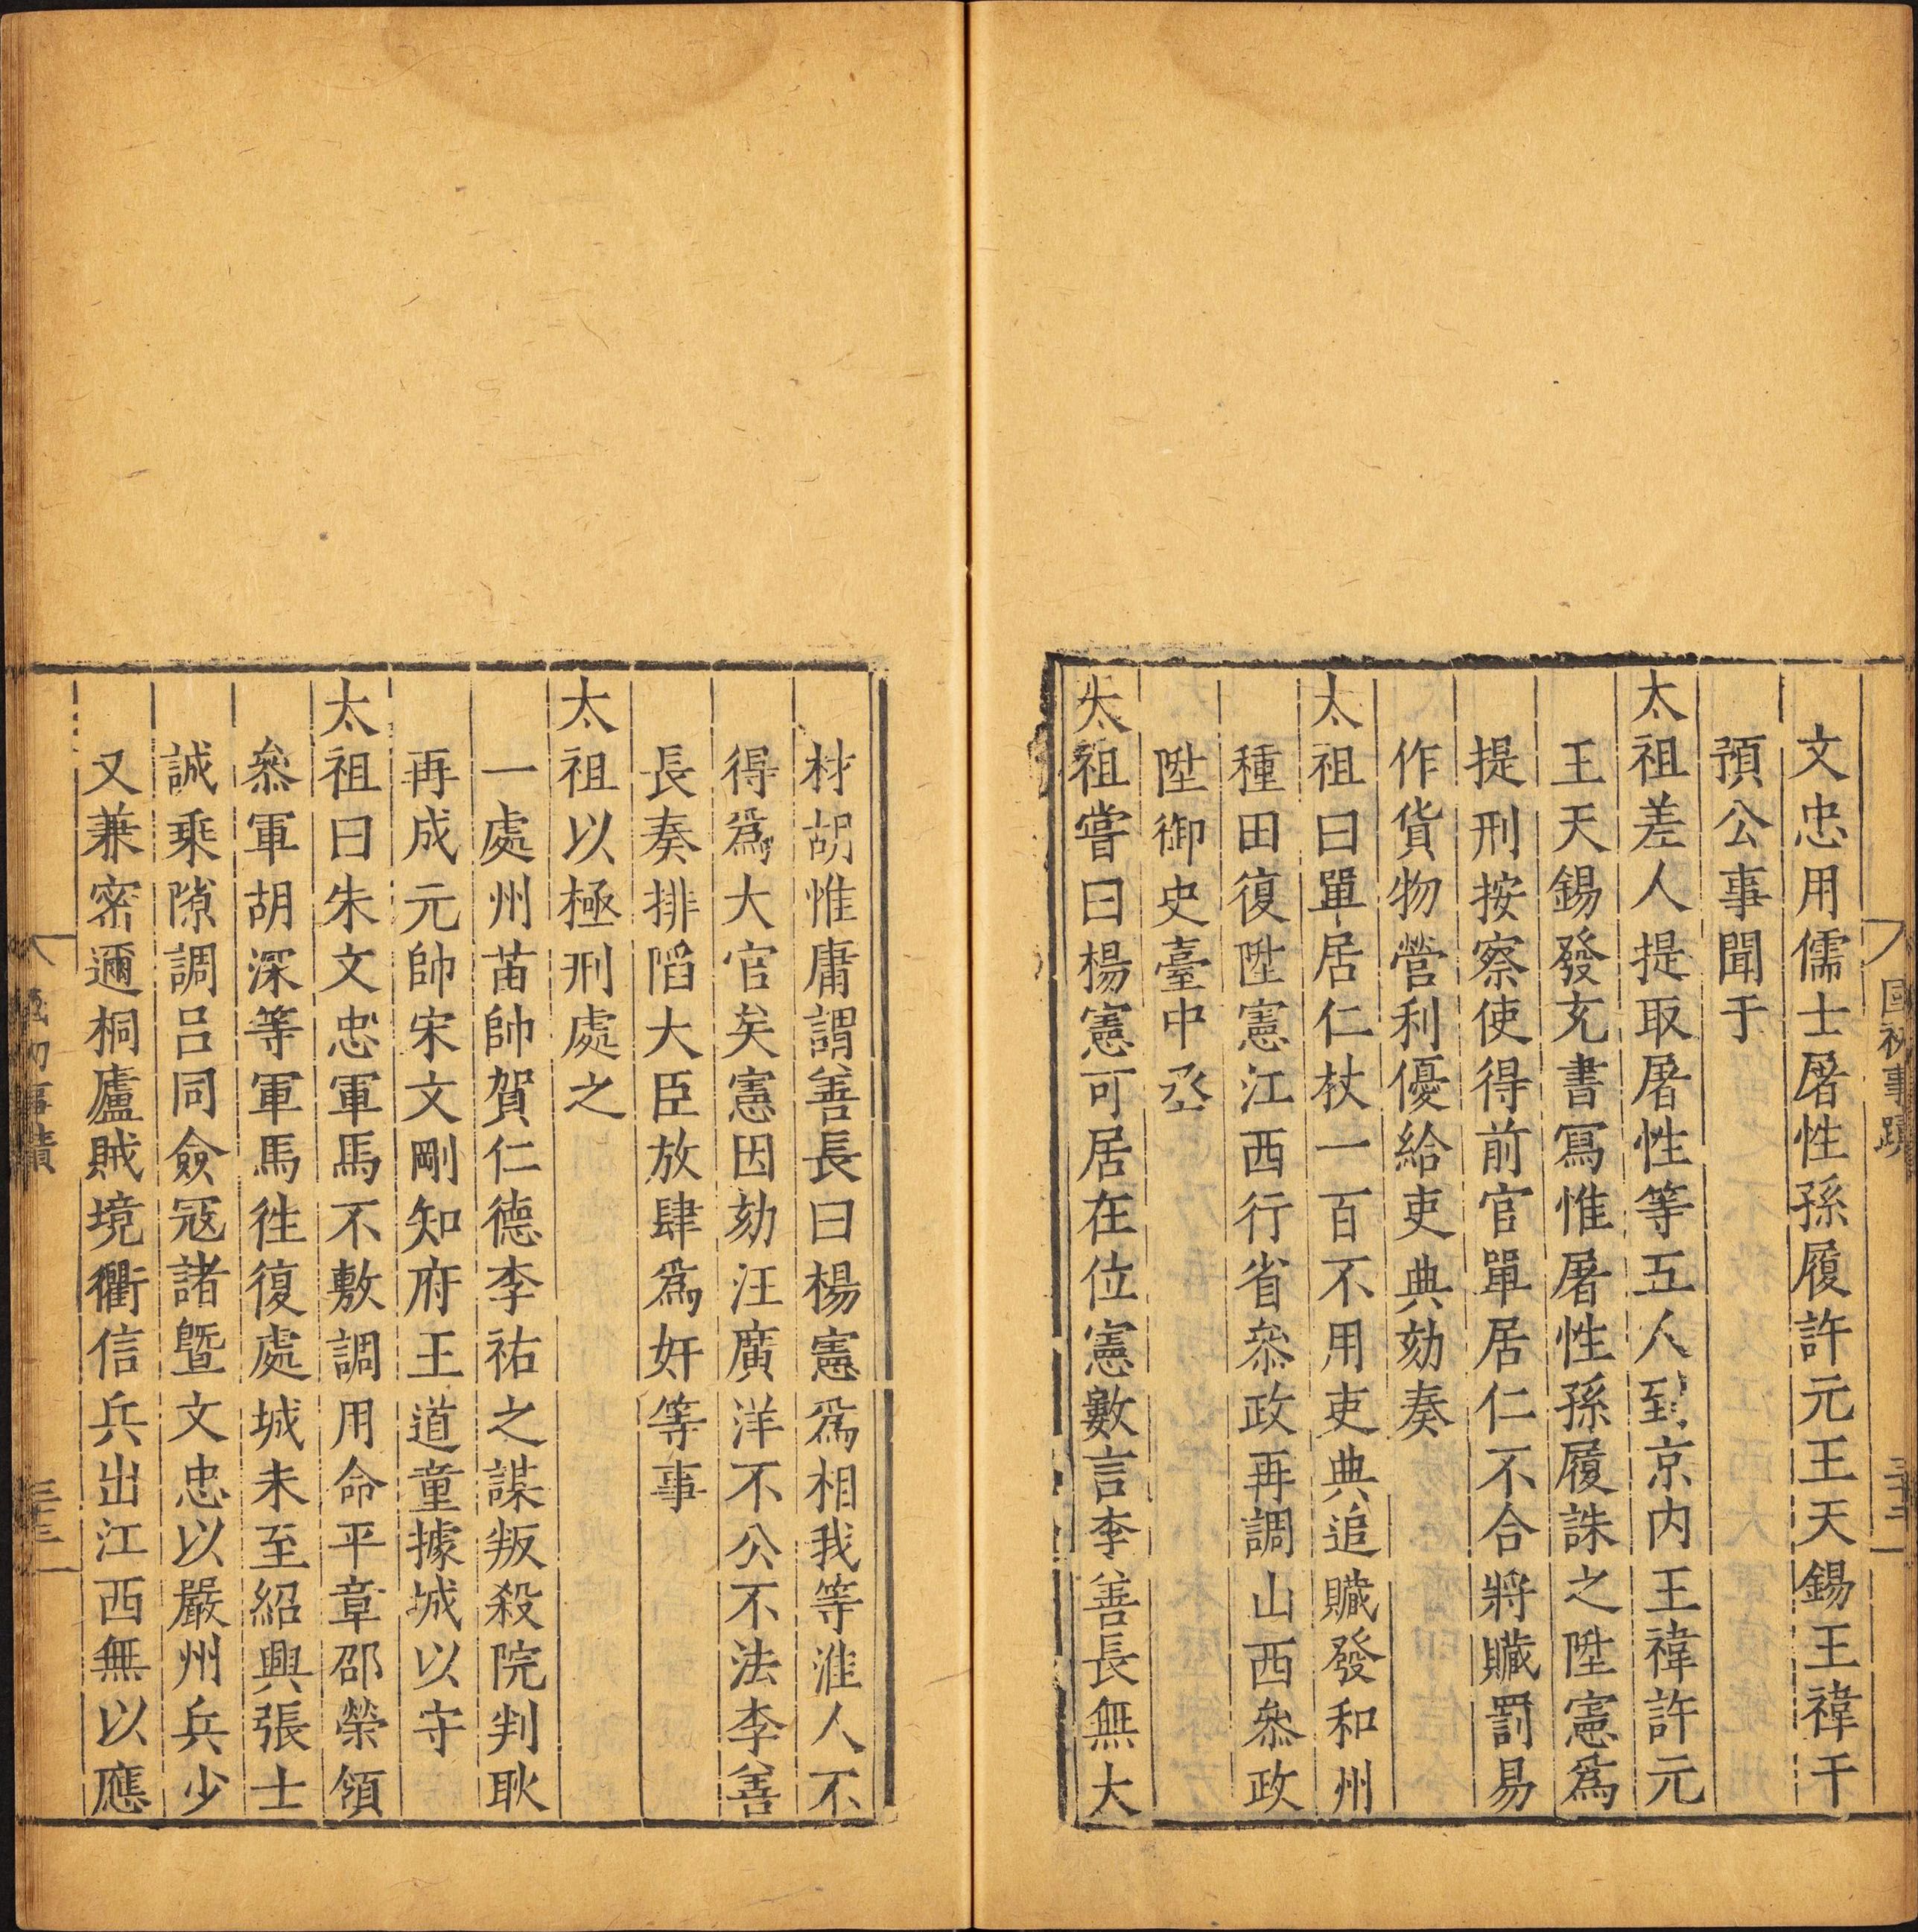 國初事蹟
三十二
文忠用儒士屠性孫履許元王天錫王禕干
預公事聞于
太祖差人提取屠性等五人到京内王禕許元
王天錫發充書寫惟屠性孫履誅之陞憲爲
提刑按察使得前官單居仁不合將贓罰易
作貨物營利優給吏典劾奏
太祖曰單居仁杖一百不用吏典追贓發和州
種田復陞憲江西行省叅政再調山西叅政
陞御史臺中丞
太祖嘗曰楊憲可居在位憲數言李善長無大
材胡惟庸謂善長曰楊憲爲相我等淮人不
得爲大官矣憲因劾汪廣洋不公不法李善
長奏排䧟大臣放肆爲奸等事
太祖以極刑處之
一處州苗帥賀仁德李祐之謀叛殺院判耿
再成元帥宋文剛知府王道童據城以守
太祖曰朱文忠軍馬不敷調用命平章邵榮領
叅軍胡深等軍馬徃復處城未至紹興張士
誠乘隙調吕同僉冦諸曁文忠以嚴州兵少
又兼密邇桐廬賊境衢信兵出江西無以應
國初事蹟
三十三